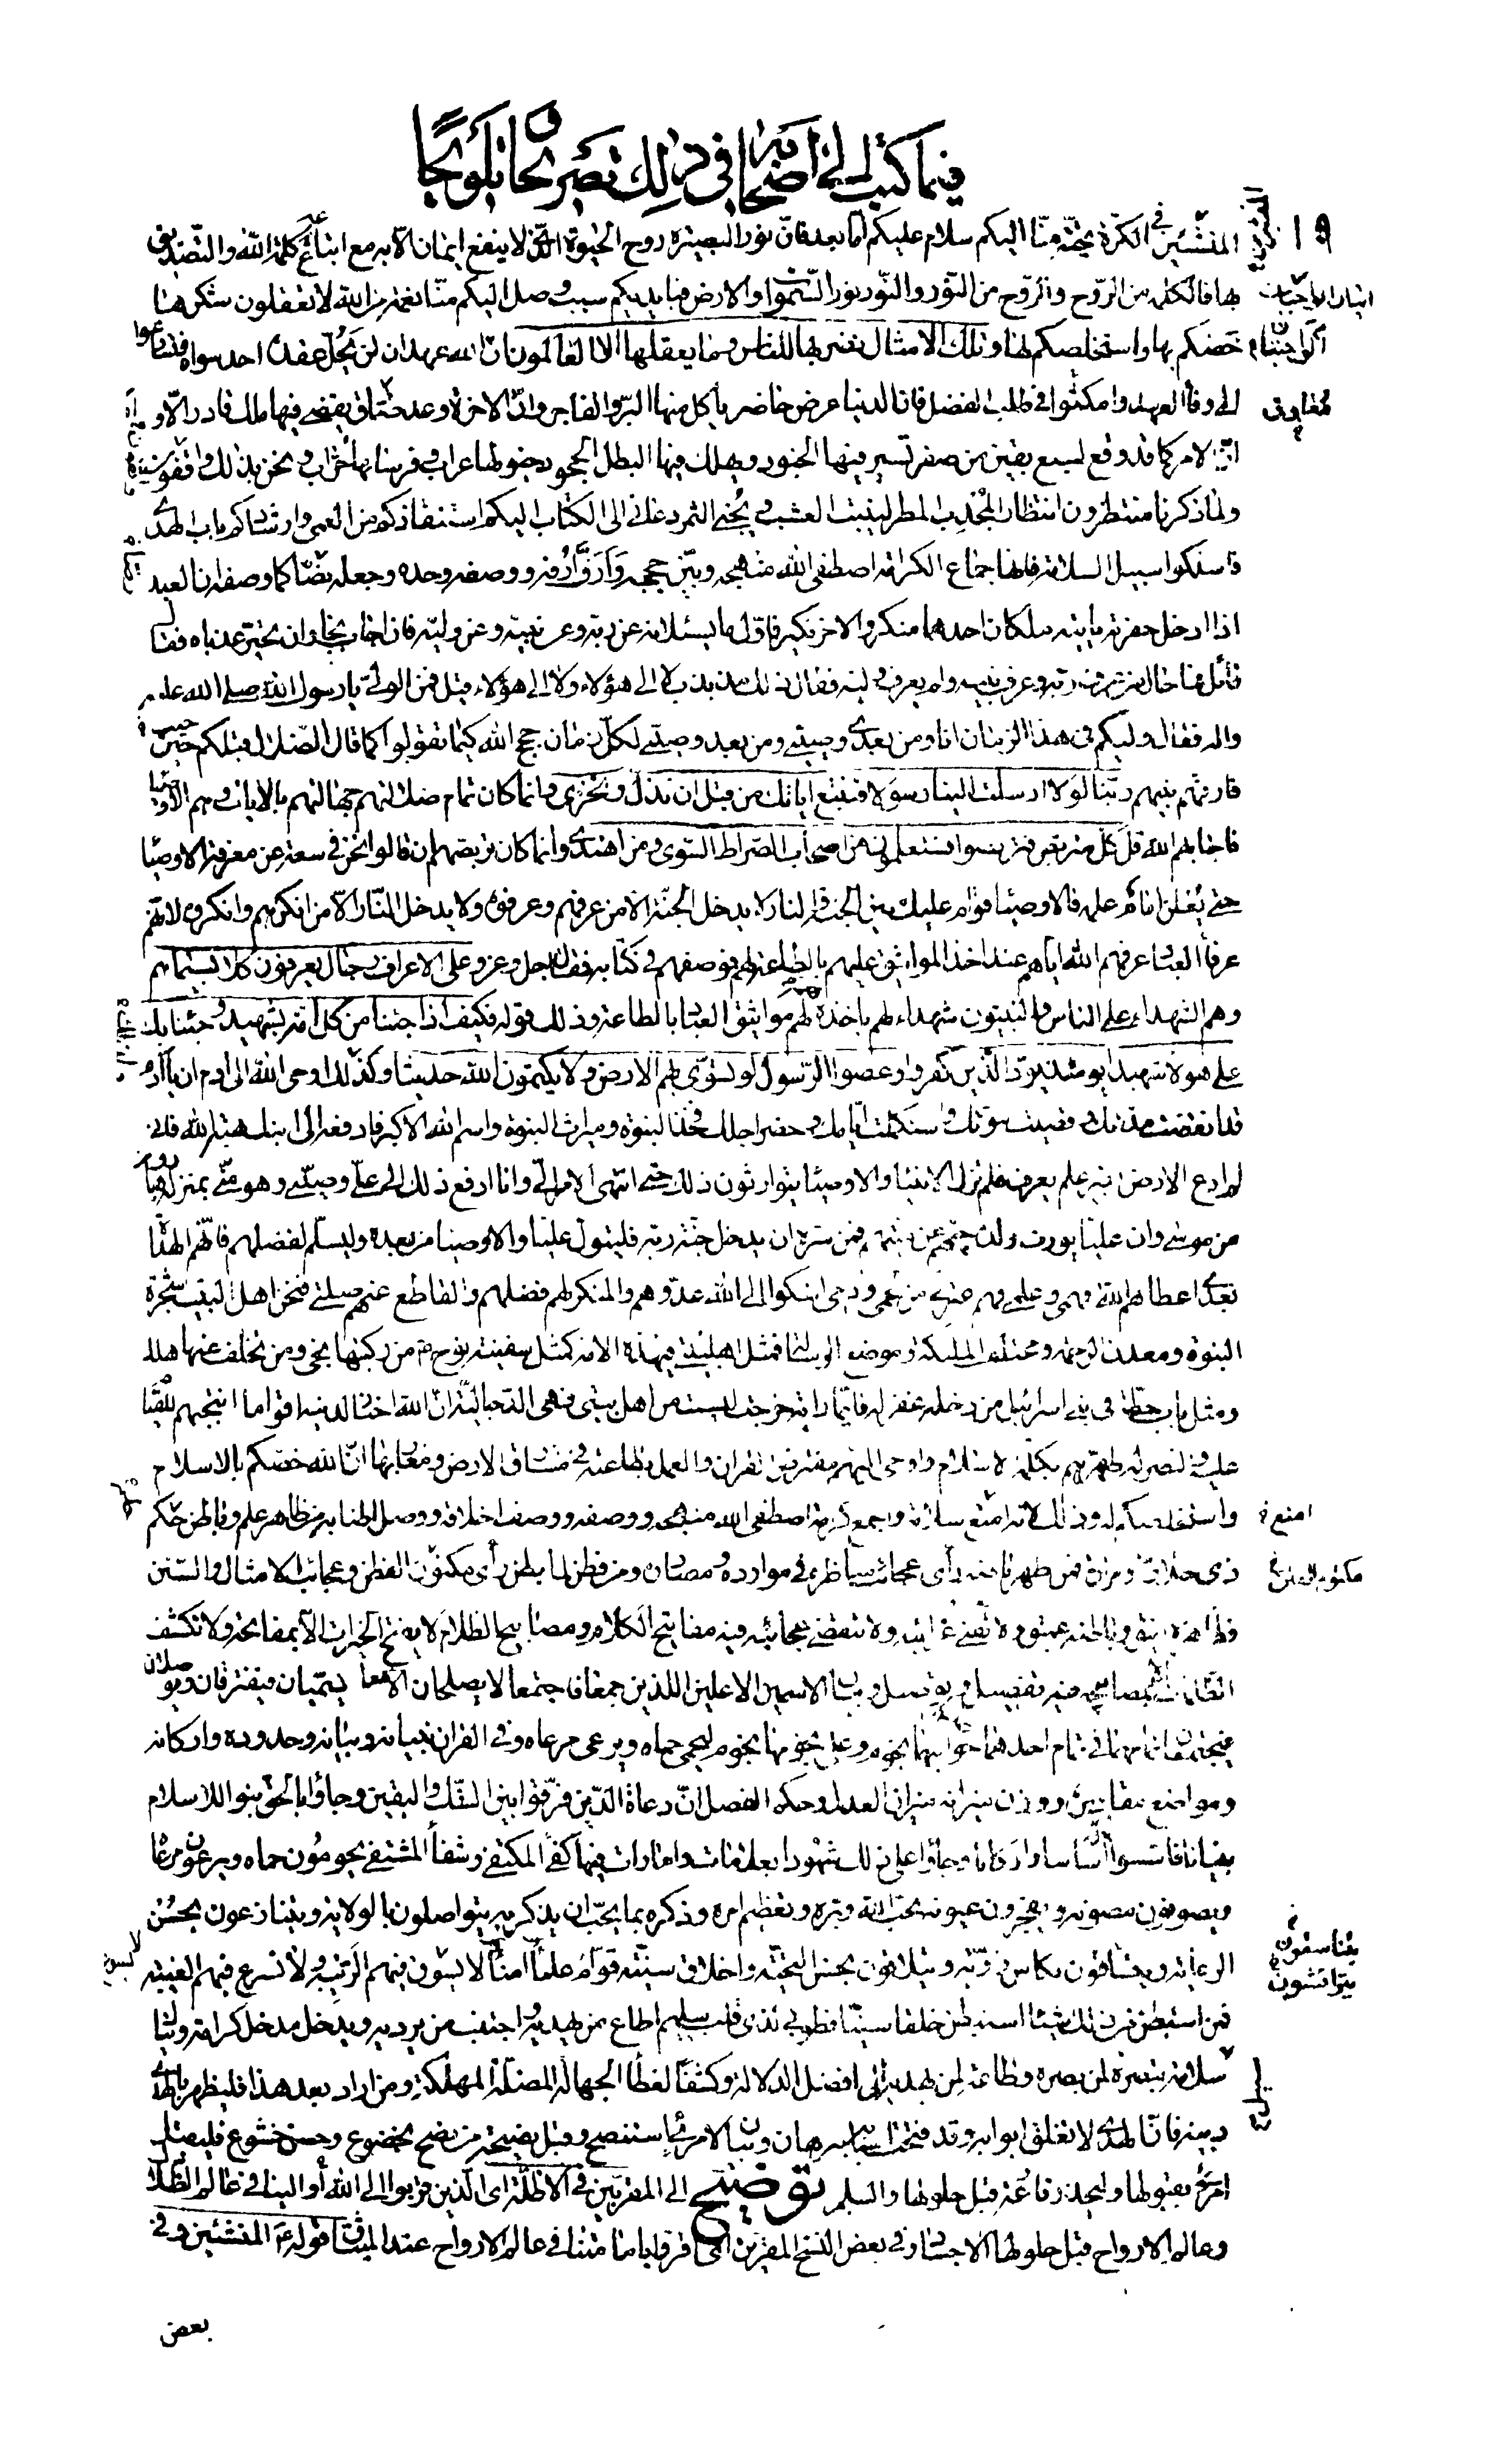 فيما كتب الى اصحابه في ذلك تصريحا وتلويحا
المنشئين في الكرة يحثه منا اليكم سلام عليكم اما بعد فان نور البصيرة روح الحيوة الذي لا ينفع ايمان الا به مع اتباع كلمة الله والتصديق
بها فالكلمة من الروح والروح من النور والنور نور السموات والارض فبايديكم سبب وصل اليكم منا نعمة من الله لا تعقلون شكرها
خصكم بها واستخلصكم لها وتلك الامثال نضربها للناس وما يعقلها الا العالمون ان الله عهد ان لن يحل عقده احد سواه فتسارعوا
الى وفاء العهد وامكثوا في طلب الفضل فان الدنيا عرض حاضر ياكل منها البر والفاجر وان الاخرة وعد صادق يقضي فيها ملك قادر الا و
ان الامر كما قد وقع لسبع بقين من صفر تسير فيها الجنود ويهلك فيها البطل الجحود خيولها عراب وفرسانها حراب ونحن بذلك واقفون
ولما ذكرنا منتظرون انتظار المجدب المطر لينبت العشب ويجنى الثمر دعاني الى الكتاب اليكم استنقاذكم من العمى وارشادكم باب الهدى
فاسلكوا سبيل السلامة فانها جماع الكرامة اصطفى الله منهجه وبين حججه وارف ارفه ووصفه وحده وجعله نصا كما وصفه ان العبد
اذا ادخل حفرته ياتيه ملكان احدهما منكر والاخر نكير فاول ما يسئلانه عن ربه وعن نبيه وعن وليه فان اجاب نجا وان تحير عذباه فقال
قائل فما حال من عرف ربه وعرف نبيه ولم يعرف وليه فقال ذلك مذبذب لا الى هؤلاء ولا الى هؤلاء قيل فمن الولي يا رسول الله صلى الله عليه
واله فقال وليكم في هذا الزمان انا ومن بعدي وصيي ومن بعد وصيي لكل زمان حجج الله كيما تقولوا كما قال الضلال قبلكم حين
فارقهم نبيهم ربنا لولا ارسلت الينا رسولا فنتبع اياتك من قبل ان نذل ونخزى وانما كان تمام ضلالتهم جهالتهم بالايات وهم الاوصياء
فاجابهم الله قل كل متربص فتربصوا فستعلمون من اصحاب الصراط السوي ومن اهتدى وانما كان تربصهم ان قالوا نحن في سعة عن معرفة الاوصياء
حتى يعلن امام علمه فالاوصياء قوام عليك بين الجنة والنار لا يدخل الجنة الا من عرفهم وعرفوه ولا يدخل النار الا من انكرهم وانكروه لانهم
عرفاء العباد عرفهم الله اياهم عند اخذ المواثيق عليهم بالطاعة لهم فوصفهم في كتابه فقال جل وعز وعلى الاعراف رجال يعرفون كلا بسيماهم
وهم الشهداء على الناس والنبيون شهداء لهم باخذه لهم مواثيق العباد بالطاعة وذلك قوله فكيف اذا جئنا من كل امة بشهيد وجئنا بك
على هولاء شهيدا يومئذ يود الذين كفروا وعصوا الرسول لو تسوى بهم الارض ولا يكتمون الله حديثا وكذلك اوحى الله الى ادم ان يا ادم
قد انقضت مدتك وقضيت نبوتك واستكملت ايامك وحضر اجلك فخذ النبوة وميراث النبوة واسم الله الاكبر فادفعه الى ابنك هبة الله فاني
لم ادع الارض بغير علم يعرف فلم تزل الانبياء والاوصياء يتوارثون ذلك حتى انتهى الامر الي وانا ادفع ذلك الى علي وصيي وهو مني بمنزلة هرون
من موسى وان عليا يورث ولده حيهم عن ميتهم فمن سره ان يدخل جنة ربه فليتول عليا والاوصياء من بعده وليسلم لفضلهم فانهم الهداة
بعدي اعطاهم الله فهمي وعلمي فهم عترتي من لحمي ودمي اشكوا الى الله عدوهم والمنكر لهم فضلهم والقاطع عنهم صلتي فنحن اهل البيت شجرة
النبوة ومعدن الرحمة ومختلف الملئكة وموضع الرسالة فمثل اهل بيتي في هذه الامة كمثل سفينة نوح من ركبها نجى ومن تخلف عنها هلك
ومثل باب حطة في بني اسرائيل من دخله غفر له فايما راية خرجت ليست من اهل بيتي فهي الدجالية ان الله اختار لدينه اقواما انتجبهم للقيام
عليه والنصر له طهرهم بكلمة الاسلام واوحى اليهم مفترض القران والعمل بطاعته في مشارق الارض ومغاربها ان الله خصكم بالاسلام
واستخلصكم له وذلك لانه امنع سلامة واجمع كرامة اصطفى الله منهجه ووصفه ووصف اخلاقه ووصل اطنابه من ظاهر علم وباطن حكم
ذي حلاوة ومرارة فمن طهر باطنه راى عجائب مناظره في موارده ومصادره ومن فطن لما بطن راى مكنون الفطن وعجائب الامثال والسنن
فظاهره انيق وباطنه عميق ولا تفنى غرائبه ولا تنقضي عجائبه فيه مفاتيح الكلام ومصابيح الظلام لا يفتح الخيرات الا بمفاتحه ولا تكشف
الظلمات الا بمصابيحه فيه تفصيل وتوصيل وبيان الاسمين الاعلين اللذين جمعا فاجتمعا لا يصلحان الا معا يسميان فيفترقان ويوصلان
فيجتمعان تمامهما في تمام احدهما حواليهما نجوم وعلى نجومها نجوم ليحمى حماه ويرعى مرعاه وفي القران تبيانه وبيانه وحدوده واركانه
ومواضع مقاديره ووزن ميزانه ميزان العدل وحكم الفصل ان دعاة الدين فرقوا بين الشك واليقين وجاؤا بالحق بنوا للاسلام
بنيانا فاسسوا له اساسا واركانا وجاؤا على ذلك شهودا بعلامات وامارات فيها كفي المكتفي وشفاء المشتفي يحومون حماه ويرعون مرعاه
ويصونون مصونه ويفجرون عيونه بحب الله وبره وتعظيم امره وذكره بما يحب ان يذكر به يتواصلون بالولاية ويتنازعون بحسن
الرعاية ويتساقون بكاس روية ويتلاقون بحسن التحية واخلاق سنية قوام علماء امناء لا يسوق فيهم الريبة ولا تسرع فيهم الغيبة
فمن استبطن من ذلك شيئا استبطن خلقا سنيا فطوبى لذي قلب سليم اطاع من يهديه واجتنب من يرديه ويدخل مدخل كرامة وينال
سلامة تبصرة لمن بصره وطاعة لمن يهديه الى افضل الدلالة وكشفا لغطاء الجهالة المضلة المهلكة ومن اراد بعد هذا فليظهر بالهدى
دينه فان الهدى لا تغلق ابوابه وقد فتحت اسبابه ببرهان وبيان لامرئ استنصح وقبل نصيحة من نصح بخضوع وحسن خشوع فليقبل
امرؤ بقبولها وليحذر قارعة قبل حلولها والسلم توضيح الى المقربين في الاظلة اي الذين قربوا الى الله او الينا في عالم الظلال
وعالم الارواح قبل حلولها الاجساد وفي بعض النسخ المقرين اي اقروا بامامتنا في عالم الارواح عند الميثاق قوله ع المنشئين وفي
بعض